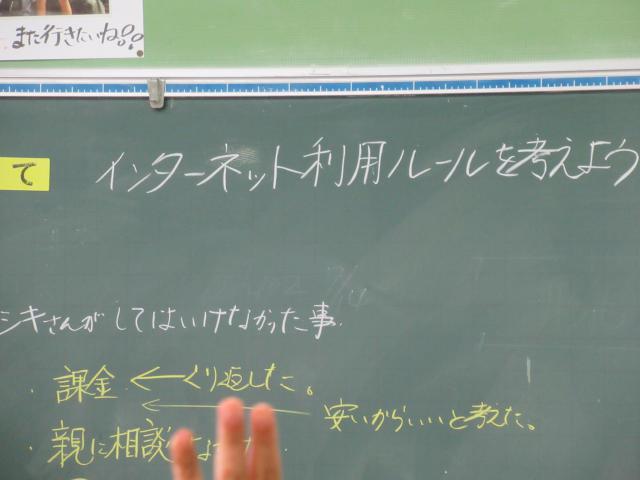 また行きたいね!!
て
インターネット利用ルールを考えよう
シキさんがしてはいけなかった事.
・課金 ← くり返した。
← 安いからいいと考えた。
・親に相談